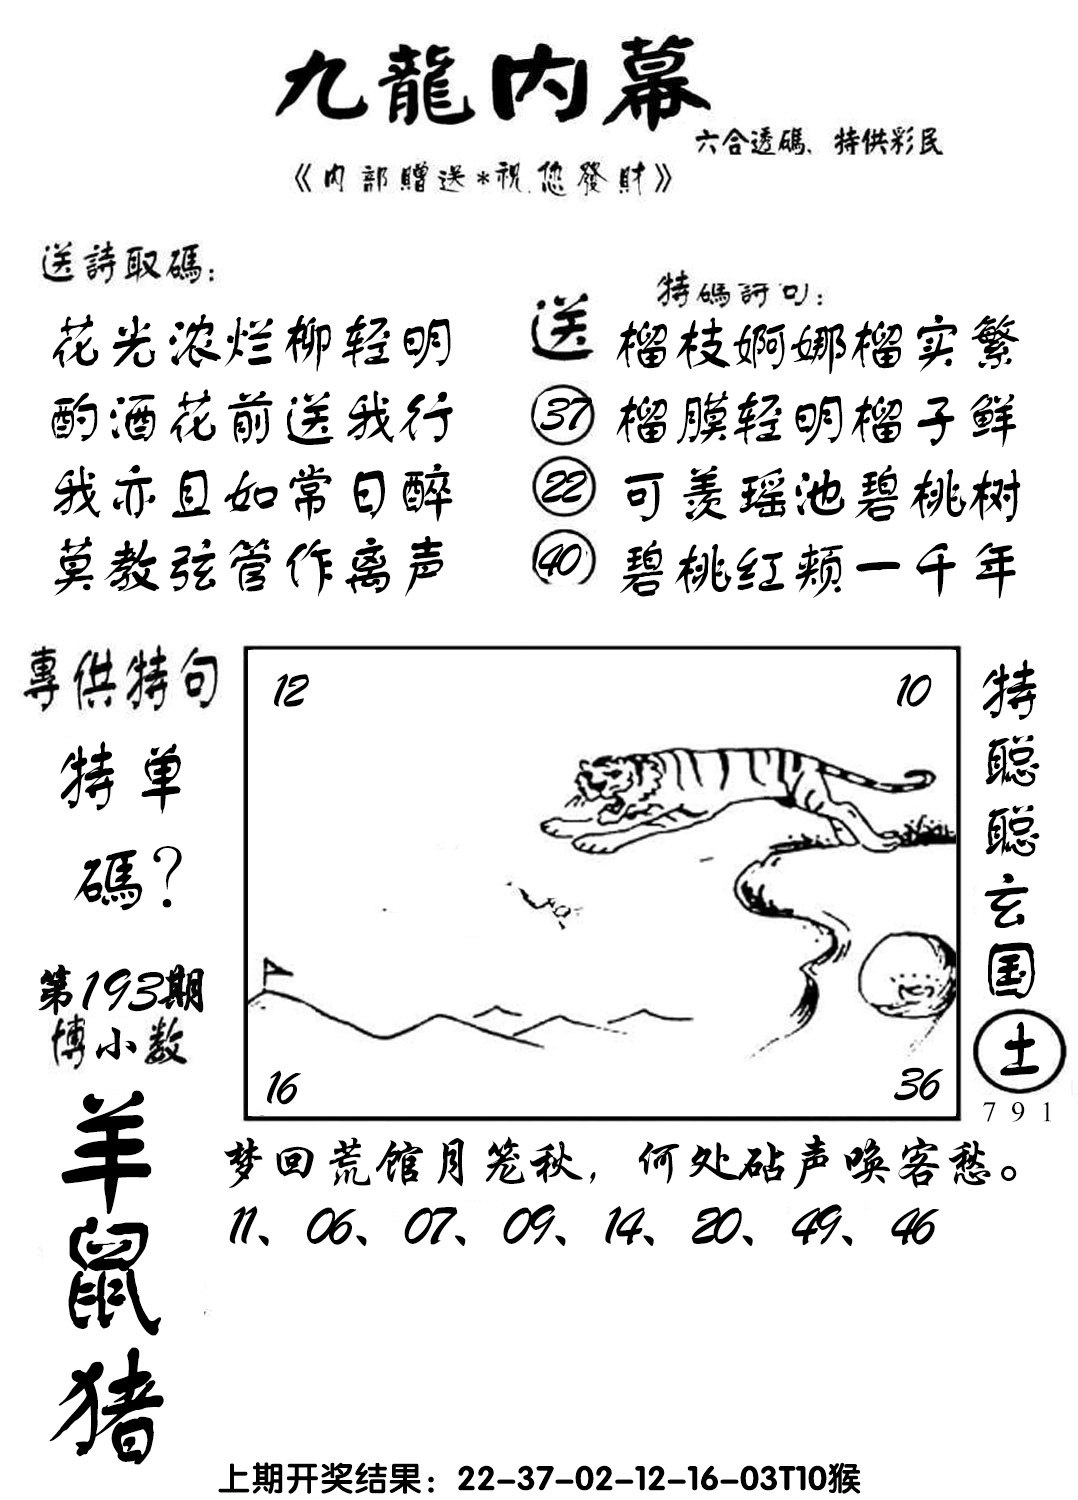 九龍内幕
六合透碼、特供彩民
《内部贈送*祝您發財》
送詩取碼：
花光浓烂柳轻明
酌酒花前送我行
我亦且如常日醉
莫教弦管作离声
特碼詩句：
送
37
22
40
榴枝婀娜榴实繁
榴膜轻明榴子鲜
可羡瑶池碧桃树
碧桃红颊一千年
專供特句
特单
碼？
第193期
博小数
羊
鼠
猪
12
10
16
36
特
聪
聪
玄
国
土
791
梦回荒馆月笼秋，何处砧声唤客愁。
11、06、07、09、14、20、49、46
上期开奖结果：22-37-02-12-16-03T10猴